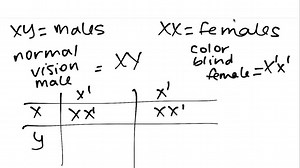 XY = males XX = females
normal vision male = XY
color blind female = X'X'
X' X'
X XX' XX'
y